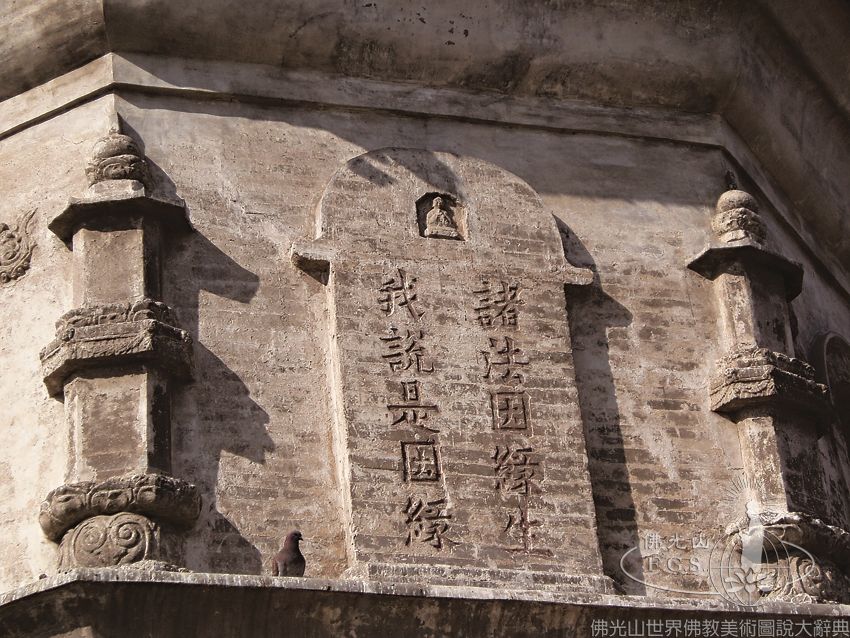 諸法因緣生
我說是因緣
佛光山
F.G.S.
佛光山世界佛教美術圖說大辭典